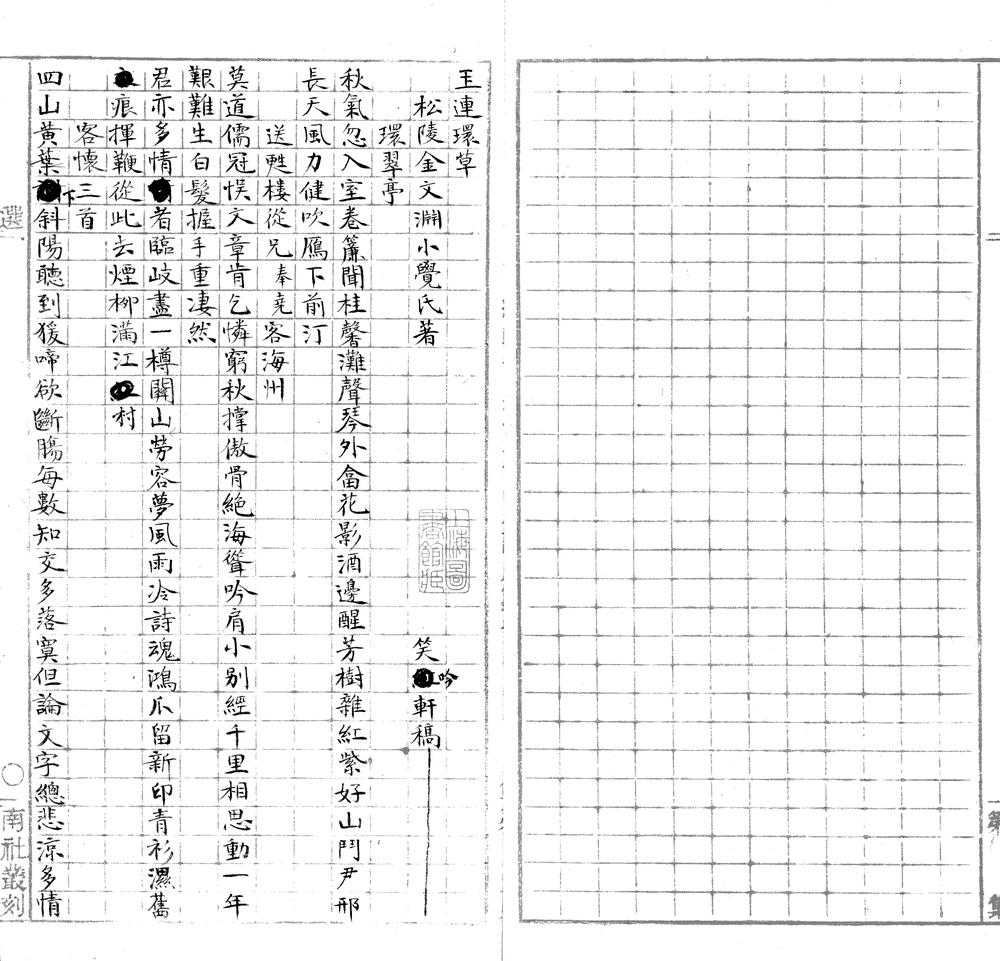 玉連環草
松陵金文淵小覺氏著
笑吟軒稿
環翠亭
秋氣忽入室卷簾聞桂馨灘聲琴外畲花影酒邊醒芳樹雜紅紫好山鬥尹邢
長天風力健吹鴈下前汀
送甦樓從兄奉堯客海州
莫道儒冠悮文章肯乞憐窮秋撑傲骨絕海聳吟肩小別經千里相思動一年
艱難生白髮握手重凄然
君亦多情者臨歧盡一樽關山勞容夢風雨冷詩魂鴻爪留新印青衫濕舊
痕揮鞭從此去煙柳滿江村
客懷三首
四山黃葉下斜陽聽到猨啼欲斷腸每數知交多落寞但論文字總悲涼多情
選
南社叢刻
二
第
集
上海圖書館藏